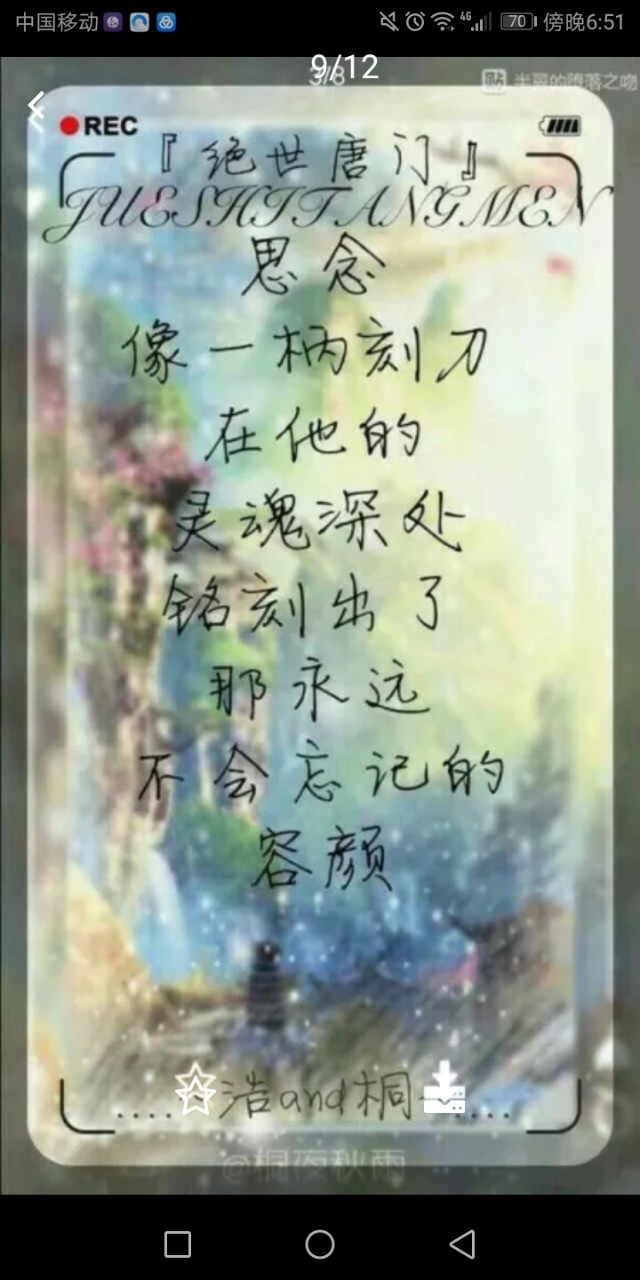 中国移动 4G 70 傍晚6:51
9/12
3/8
贴 半夏的堕落之吻
REC
『绝世唐门』
JUESHITANGMEN
思念
像一柄刻刀
在他的
灵魂深处
铭刻出了
那永远
不会忘记的
容颜
....浩and桐....
@桐夜秋雨